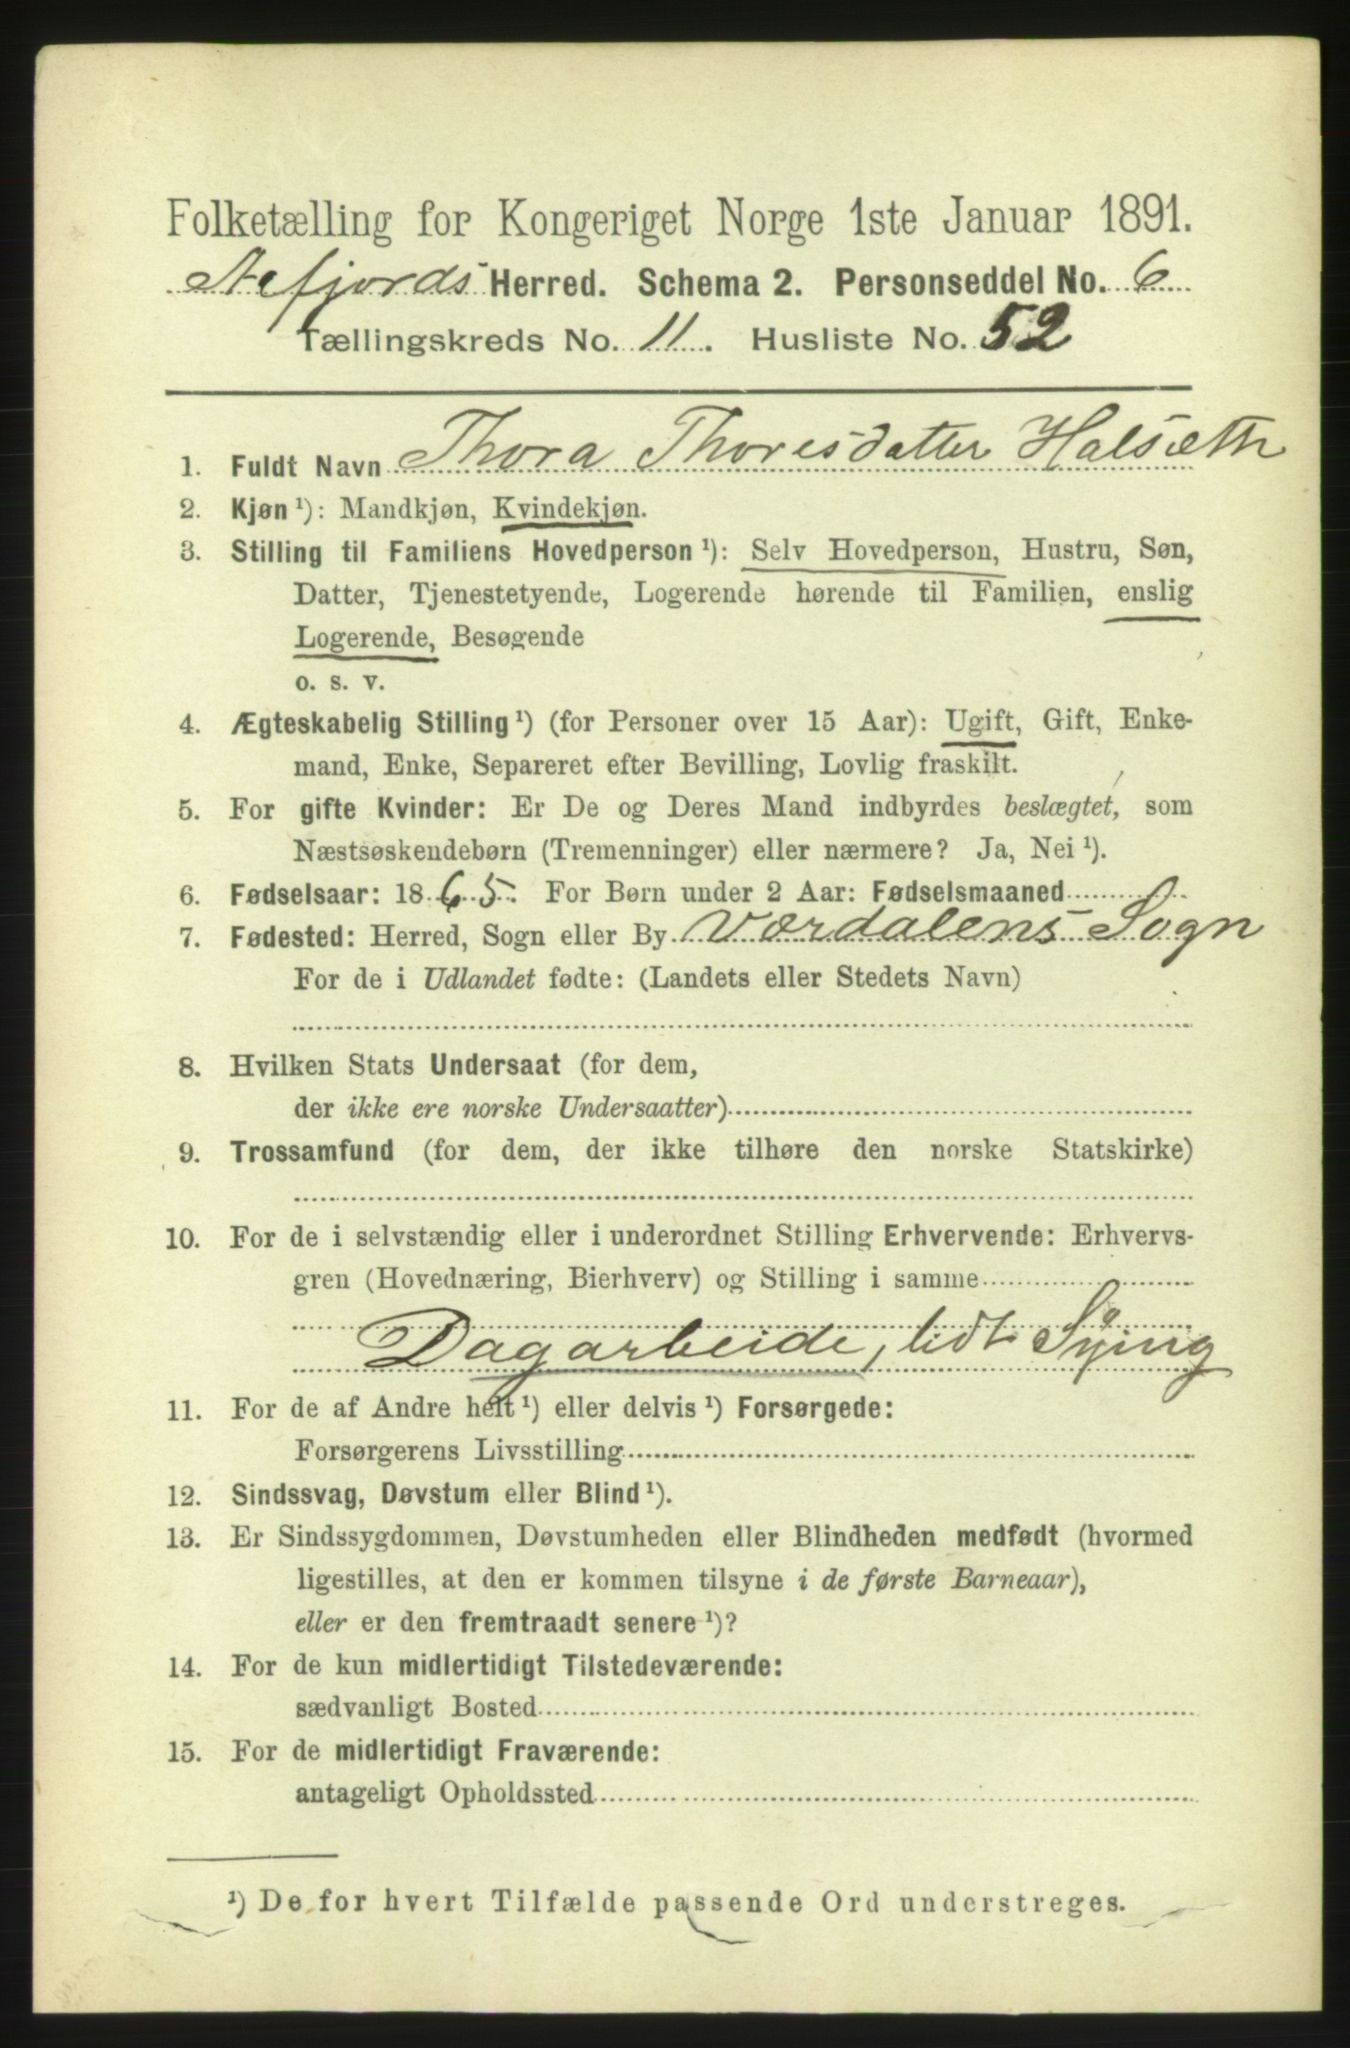 Folketælling for Kongeriget Norge 1ste Januar 1891.
Aafjords Herred. Schema 2. Personseddel No. 6
Tællingskreds No. 11. Husliste No. 52
1. Fuldt Navn Thora Thoresdatter Halsæth
2. Kjøn ¹): Mandkjøn, Kvindekjøn.
3. Stilling til Familiens Hovedperson ¹): Selv Hovedperson, Hustru, Søn,
Datter, Tjenestetyende, Logerende hørende til Familien, enslig
Logerende, Besøgende
o. s. v.
4. Ægteskabelig Stilling ¹) (for Personer over 15 Aar): Ugift, Gift, Enke-
mand, Enke, Separeret efter Bevilling, Lovlig fraskilt.
5. For gifte Kvinder: Er De og Deres Mand indbyrdes beslægtet, som
Næstsøskendebørn (Tremenninger) eller nærmere? Ja, Nei ¹).
6. Fødselsaar: 1865. For Børn under 2 Aar: Fødselsmaaned
7. Fødested: Herred, Sogn eller By Værdalens Sogn
For de i Udlandet fødte: (Landets eller Stedets Navn)
8. Hvilken Stats Undersaat (for dem,
der ikke ere norske Undersaatter)
9. Trossamfund (for dem, der ikke tilhøre den norske Statskirke)
10. For de i selvstændig eller i underordnet Stilling Erhvervende: Erhvervs-
gren (Hovednæring, Bierhverv) og Stilling i samme
Dagarbeide, lidt Sying
11. For de af Andre helt ¹) eller delvis ¹) Forsørgede:
Forsørgerens Livsstilling
12. Sindssvag, Døvstum eller Blind ¹).
13. Er Sindssygdommen, Døvstumheden eller Blindheden medfødt (hvormed
ligestilles, at den er kommen tilsyne i de første Barneaar),
eller er den fremtraadt senere ¹)?
14. For de kun midlertidigt Tilstedeværende:
sædvanligt Bosted
15. For de midlertidigt Fraværende:
antageligt Opholdssted
¹) De for hvert Tilfælde passende Ord understreges.